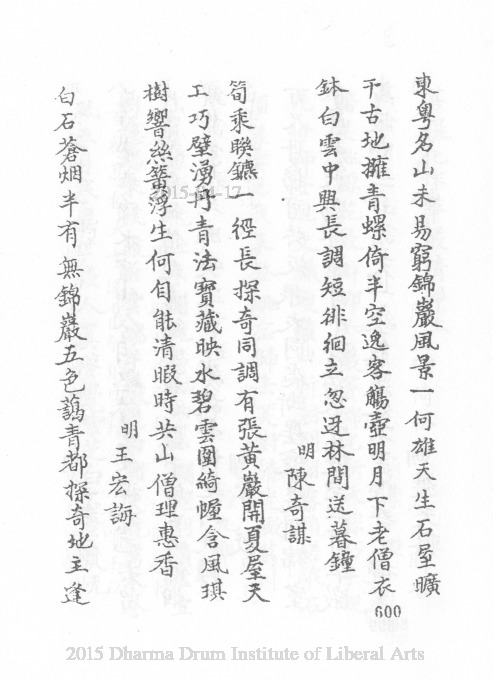 東粵名山未易窮錦巖風景一何雄天生石室曠
千古地擁青螺倚半空逸客觴壺明月下老僧衣
鉢白雲中興長調短徘徊立忽迓林間送暮鐘
明陳奇謀
筍乘聯鑣一徑長探奇同調有張黃巖開夏屋天
工巧壁湧丹青法寶藏映水碧雲圍綺幄含風琪
樹響絲簧浮生何自能清暇時共山僧理惠香
明王宏誨
白石蒼烟半有無錦巖五色藹青都探奇地主逢
600
2015-04-17
2015 Dharma Drum Institute of Liberal Arts